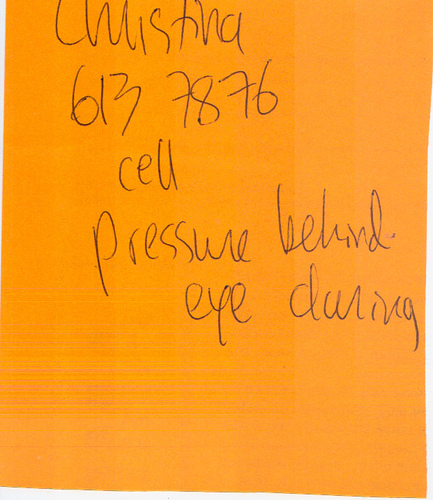 Christina
613 7876
cell
pressure behind
eye during